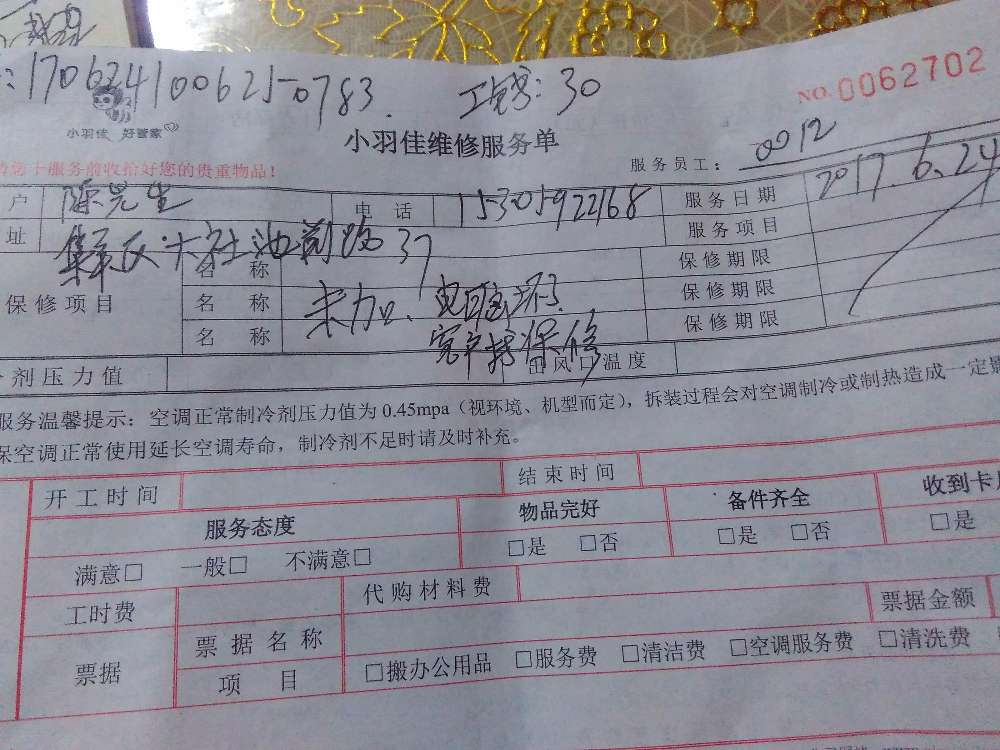 : 170624100625-0783 30
NO.0062702
小羽佳 好管家
小羽佳维修服务单
服务员工: 0012
服务前收拾好您的贵重物品!
户 陈先生 电话 15305922168 服务日期 2017.6.24
址 集美区 大社池前路37 服务项目
保修项目 名称 保修期限
名称 未加口、 保修期限
名称 保修 保修期限
剂压力值 出风口温度
服务温馨提示: 空调正常制冷剂压力值为0.45mpa(视环境、机型而定), 拆装过程会对空调制冷或制热造成一定
保空调正常使用延长空调寿命, 制冷剂不足时请及时补充。
开工时间 结束时间
服务态度 物品完好 备件齐全 收到卡
满意□ 一般□ 不满意□ □是 □否 □是 □否 □是
工时费 代购材料费
票据 票据名称 票据金额
项目 □搬办公用品 □服务费 □清洁费 □空调服务费 □清洗费